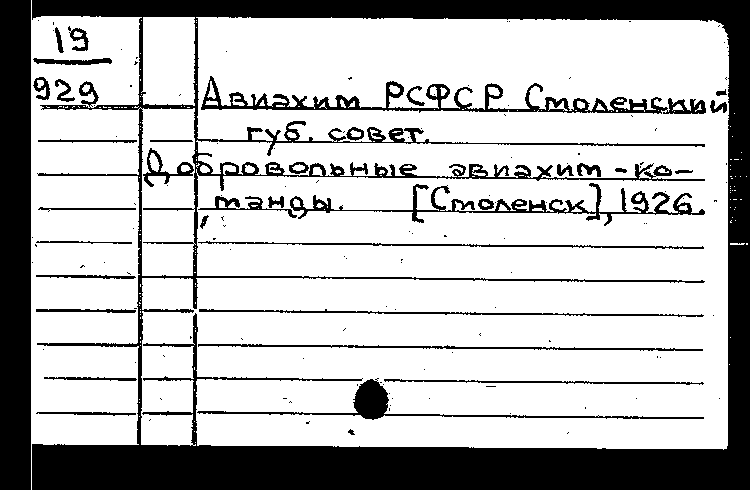 19
929
Авиахим РСФСР Смоленский
губ. совет.
Добровольные авиахим-ко-
манды. [Смоленск], 1926.